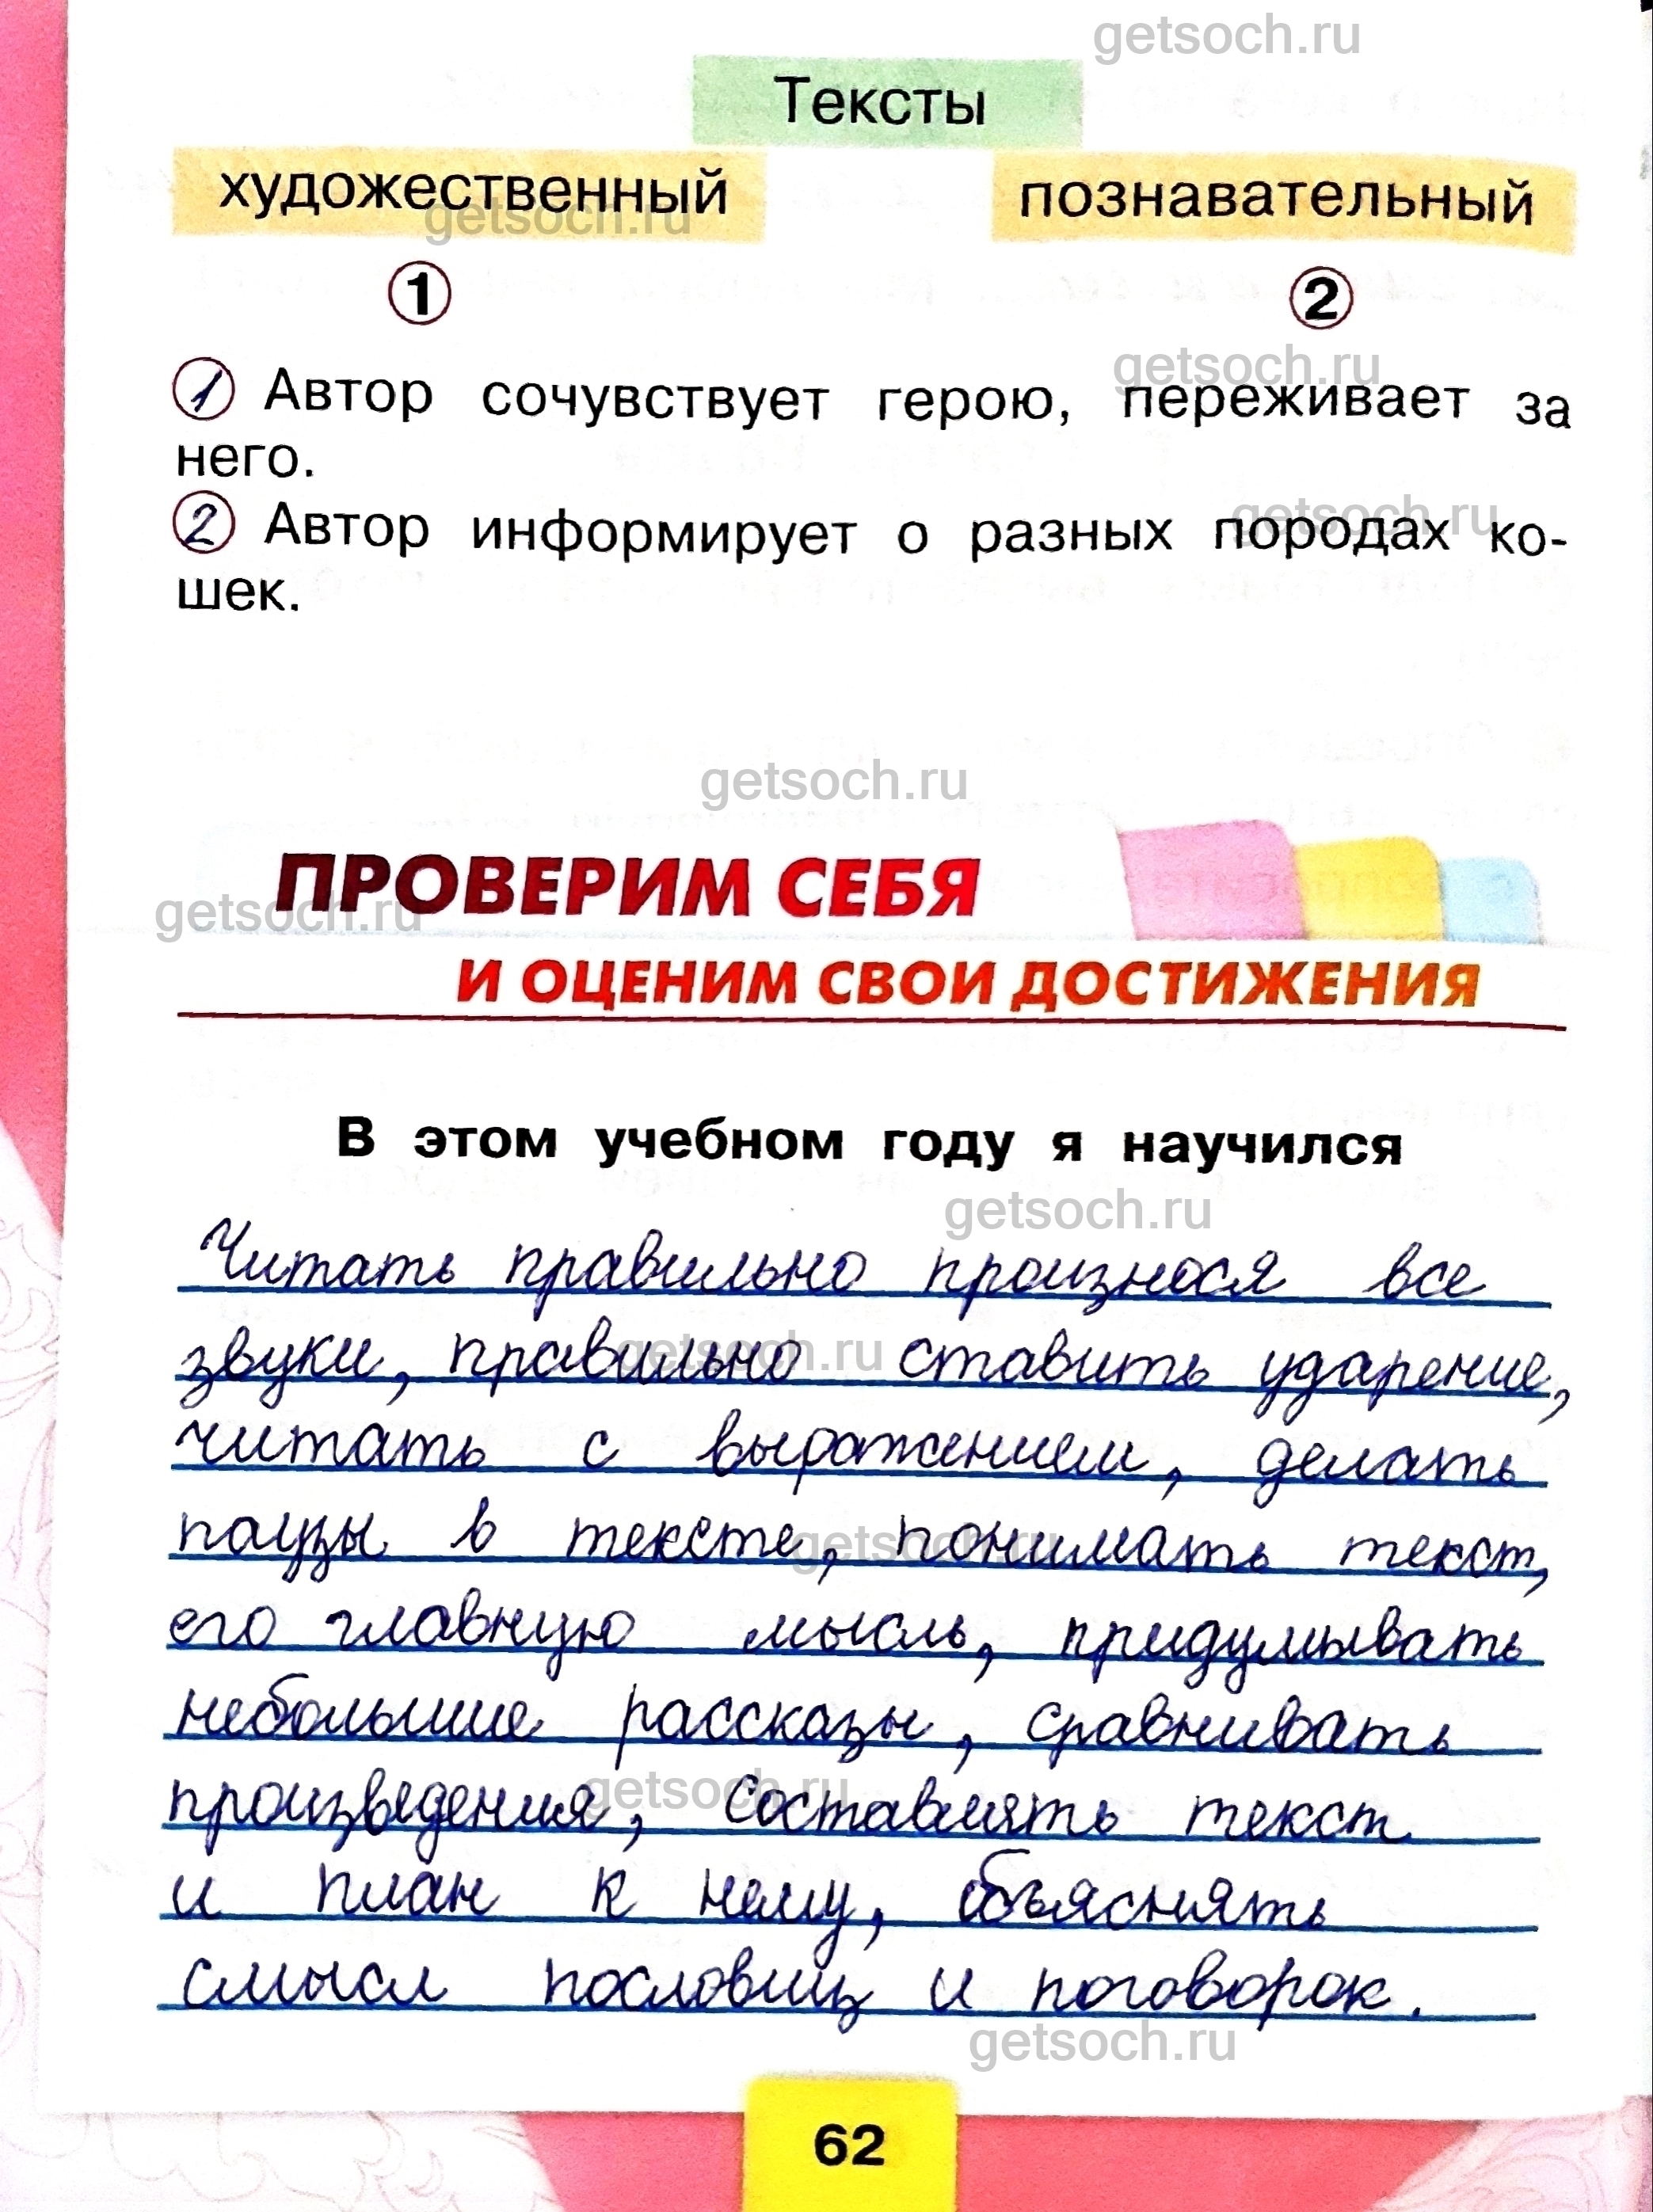 getsoch.ru
Тексты
художественный познавательный
getsoch.ru
1 2
getsoch.ru
1 Автор сочувствует герою, переживает за
него.
getsoch.ru
2 Автор информирует о разных породах ко-
шек.
getsoch.ru
ПРОВЕРИМ СЕБЯ
getsoch.ru
И ОЦЕНИМ СВОИ ДОСТИЖЕНИЯ
В этом учебном году я научился
getsoch.ru
Читать правильно произнося все
getsoch.ru
звуки, правильно ставить ударение,
читать с выражением, делать
getsoch.ru
паузы в тексте, понимать текст,
его главную мысль, придумывать
небольшие рассказы, сравнивать
getsoch.ru
произведения, составлять текст
и план к нему, объяснять
смысл пословиц и поговорок.
getsoch.ru
62